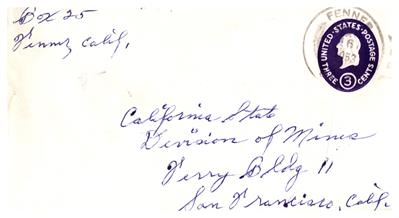 Box 25
Fenner, Calif.
FENNER
UNITED·STATES·POSTAGE
6
3
THREE CENTS
California State
Division of Mines
Ferry Bldg 11
San Francisco, Calif.